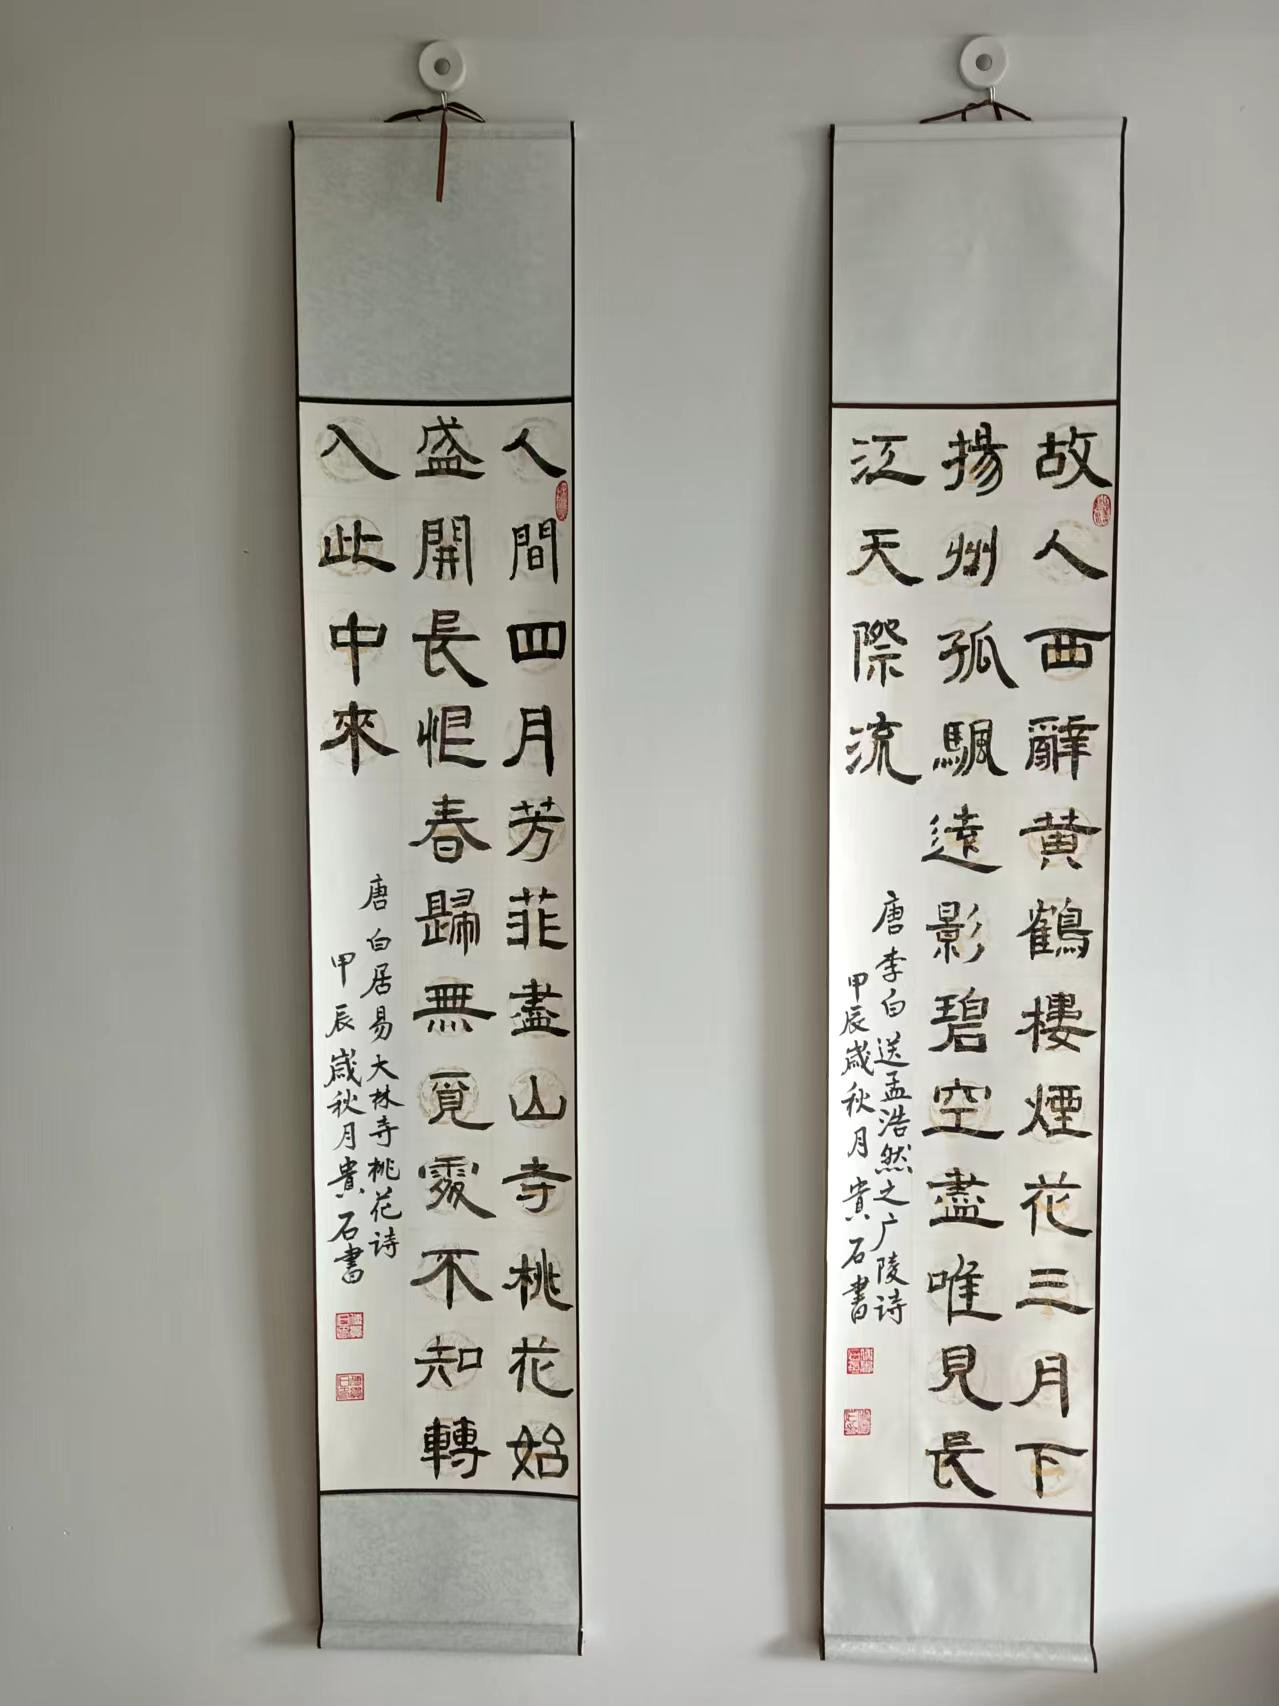 故人西辭黄鶴樓煙花三月下
揚州孤颿遠影碧空盡唯見長
江天際流
唐李白送孟浩然之广陵诗
甲辰歲秋月貴石書
人間四月芳菲盡山寺桃花始
盛開長恨春歸無覓處不知轉
入此中來
唐白居易大林寺桃花诗
甲辰歲秋月貴石書